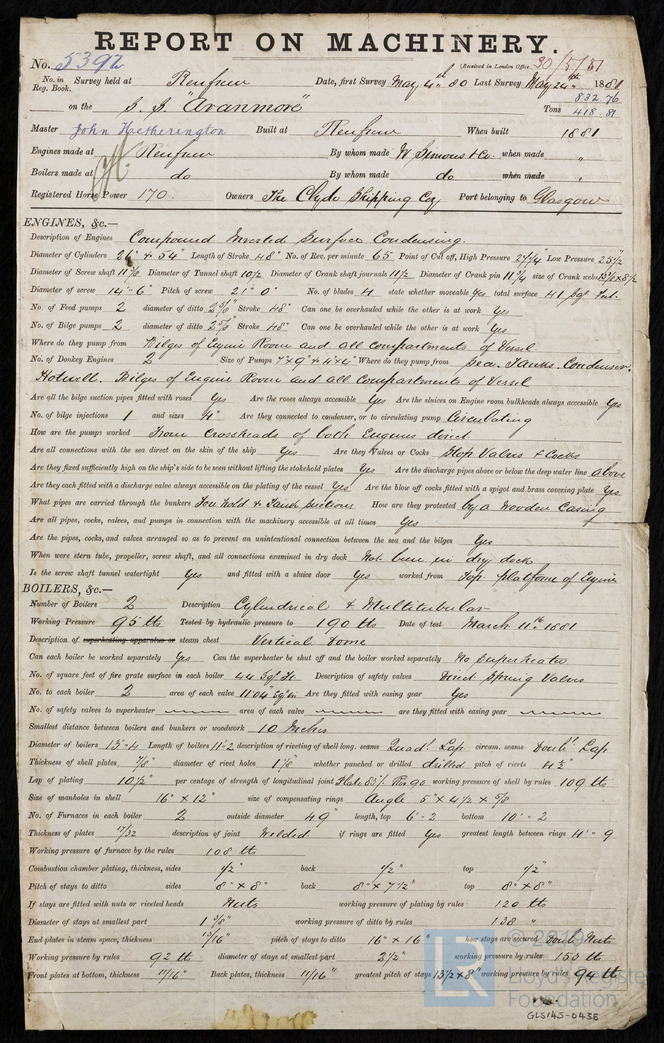 REPORT ON MACHINERY.
No. 5392 (Received in London Office 30/5/81
No. in Reg. Book. Survey held at Renfrew Date, first Survey May 4th 80 Last Survey May 24th 1881
on the S.S. "Aranmore" Tons 832.76 418.81
Master John Hetherington Built at Renfrew When built 1881
Engines made at Renfrew By whom made W Simons & Co. when made "
Boilers made at do By whom made do when made "
Registered Horse Power 170 Owners The Clyde Shipping Coy Port belonging to Glasgow
ENGINES, &c.—
Description of Engines Compound Inverted Surface Condensing.
Diameter of Cylinders 26" & 54" Length of Stroke 48" No. of Rev. per minute 65 Point of Cut off, High Pressure Low Pressure
Diameter of Screw shaft Diameter of Tunnel shaft 10 1/2 Diameter of Crank shaft journals 11 1/2 Diameter of Crank pin 11 3/4 size of Crank webs
Diameter of screw 14'-6" Pitch of screw 21'0" No. of blades 4 state whether moveable Yes total surface 41 Sqr Feet.
No. of Feed pumps 2 diameter of ditto Stroke 48" Can one be overhauled while the other is at work Yes
No. of Bilge pumps 2 diameter of ditto Stroke 48" Can one be overhauled while the other is at work Yes
Where do they pump from Bilges of Engine Room and all compartments of Vessel
No. of Donkey Engines 2 Size of Pumps 7 x 9" & 4 x 4" Where do they pump from Sea. Tanks. Condenser.
Hotwell. Bilges of Engine Room and all Compartments of Vessel
Are all the bilge suction pipes fitted with roses Yes Are the roses always accessible Yes Are the sluices on Engine room bulkheads always accessible Yes
No. of bilge injections 1 and sizes 4" Are they connected to condenser, or to circulating pump Circulating
How are the pumps worked From Crossheads of both Engines direct
Are all connections with the sea direct on the skin of the ship Yes Are they Valves or Cocks Stop Valves & Cocks
Are they fixed sufficiently high on the ship's side to be seen without lifting the stokehold plates Yes Are the discharge pipes above or below the deep water line above
Are they each fitted with a discharge valve always accessible on the plating of the vessel Yes Are the blow off cocks fitted with a spigot and brass covering plate Yes
What pipes are carried through the bunkers Fore hold & Tank Suctions How are they protected by a Wooden Casing
Are all pipes, cocks, valves, and pumps in connection with the machinery accessible at all times Yes
Are the pipes, cocks, and valves arranged so as to prevent an unintentional connection between the sea and the bilges Yes
When were stern tube, propeller, screw shaft, and all connections examined in dry dock Not been in dry dock
Is the screw shaft tunnel watertight Yes and fitted with a sluice door Yes worked from Top platform of Engine
BOILERS, &c.—
Number of Boilers 2 Description Cylindrical & Multitubular
Working Pressure 95 lb Tested by hydraulic pressure to 190 lb Date of test March 11th 1881
Description of superheating apparatus or steam chest Vertical Dome
Can each boiler be worked separately Yes Can the superheater be shut off and the boiler worked separately No Superheater
No. of square feet of fire grate surface in each boiler 44 Sqr Ft Description of safety valves Direct Spring Valves
No. to each boiler 2 area of each valve Are they fitted with easing gear Yes
No. of safety valves to superheater area of each valve are they fitted with easing gear
Smallest distance between boilers and bunkers or woodwork 10 Inches
Diameter of boilers 13'-4 Length of boilers 11-2 description of riveting of shell long. seams Quad. Lap circum. seams Doub. Lap
Thickness of shell plates 7/8" diameter of rivet holes whether punched or drilled drilled pitch of rivets
Lap of plating 10 1/2" per centage of strength of longitudinal joint Plate 83% Riv 90 working pressure of shell by rules 109 lb
Size of manholes in shell 16" x 12" size of compensating rings Angle 5" x 4 1/2 x 5/8
No. of Furnaces in each Boiler 2 outside diameter 49" length, top 6'-2 bottom 10'-2
Thickness of plates 17/32 description of joint Welded if rings are fitted Yes greatest length between rings 4'-9
Working pressure of furnace by the rules 108 lb
Combustion chamber plating, thickness, sides 1/2" back 1/2" top 1/2"
Pitch of stays to ditto sides 8" x 8" back 8" x 7 1/2" top 8" x 8"
If stays are fitted with nuts or riveted heads Nuts working pressure of plating by rules 120 lb
Diameter of stays at smallest part 1 3/8" working pressure of ditto by rules 138 "
End plates in steam space, thickness 13/16" pitch of stays to ditto 16" x 16" how stays are secured Doub. Nuts
Working pressure by rules 92 lb diameter of stays at smallest part 2 1/2" working pressure by rules 153 lb
Front plates at bottom, thickness 11/16" Back plates, thickness 11/16" greatest pitch of stays 13 1/2 x 8" working pressure by rules 94 lb
LR © 2019
Lloyd's Register
Foundation
GLS145-0438